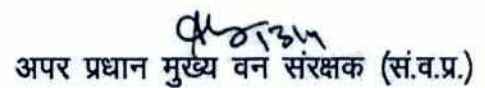 अपर प्रधान मुख्य वन संरक्षक (सं.व.प्र.)